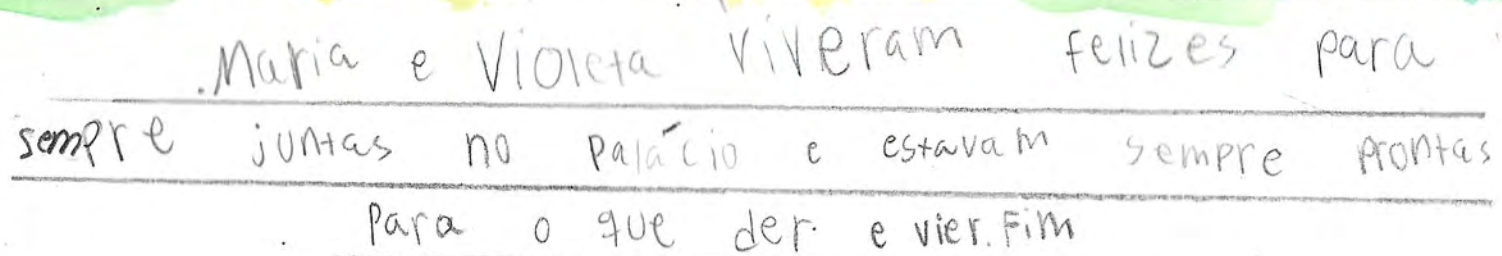 .Maria e Violeta viveram felizes para
sempre juntas no palácio e estavam sempre prontas
para o que der e vier. Fim